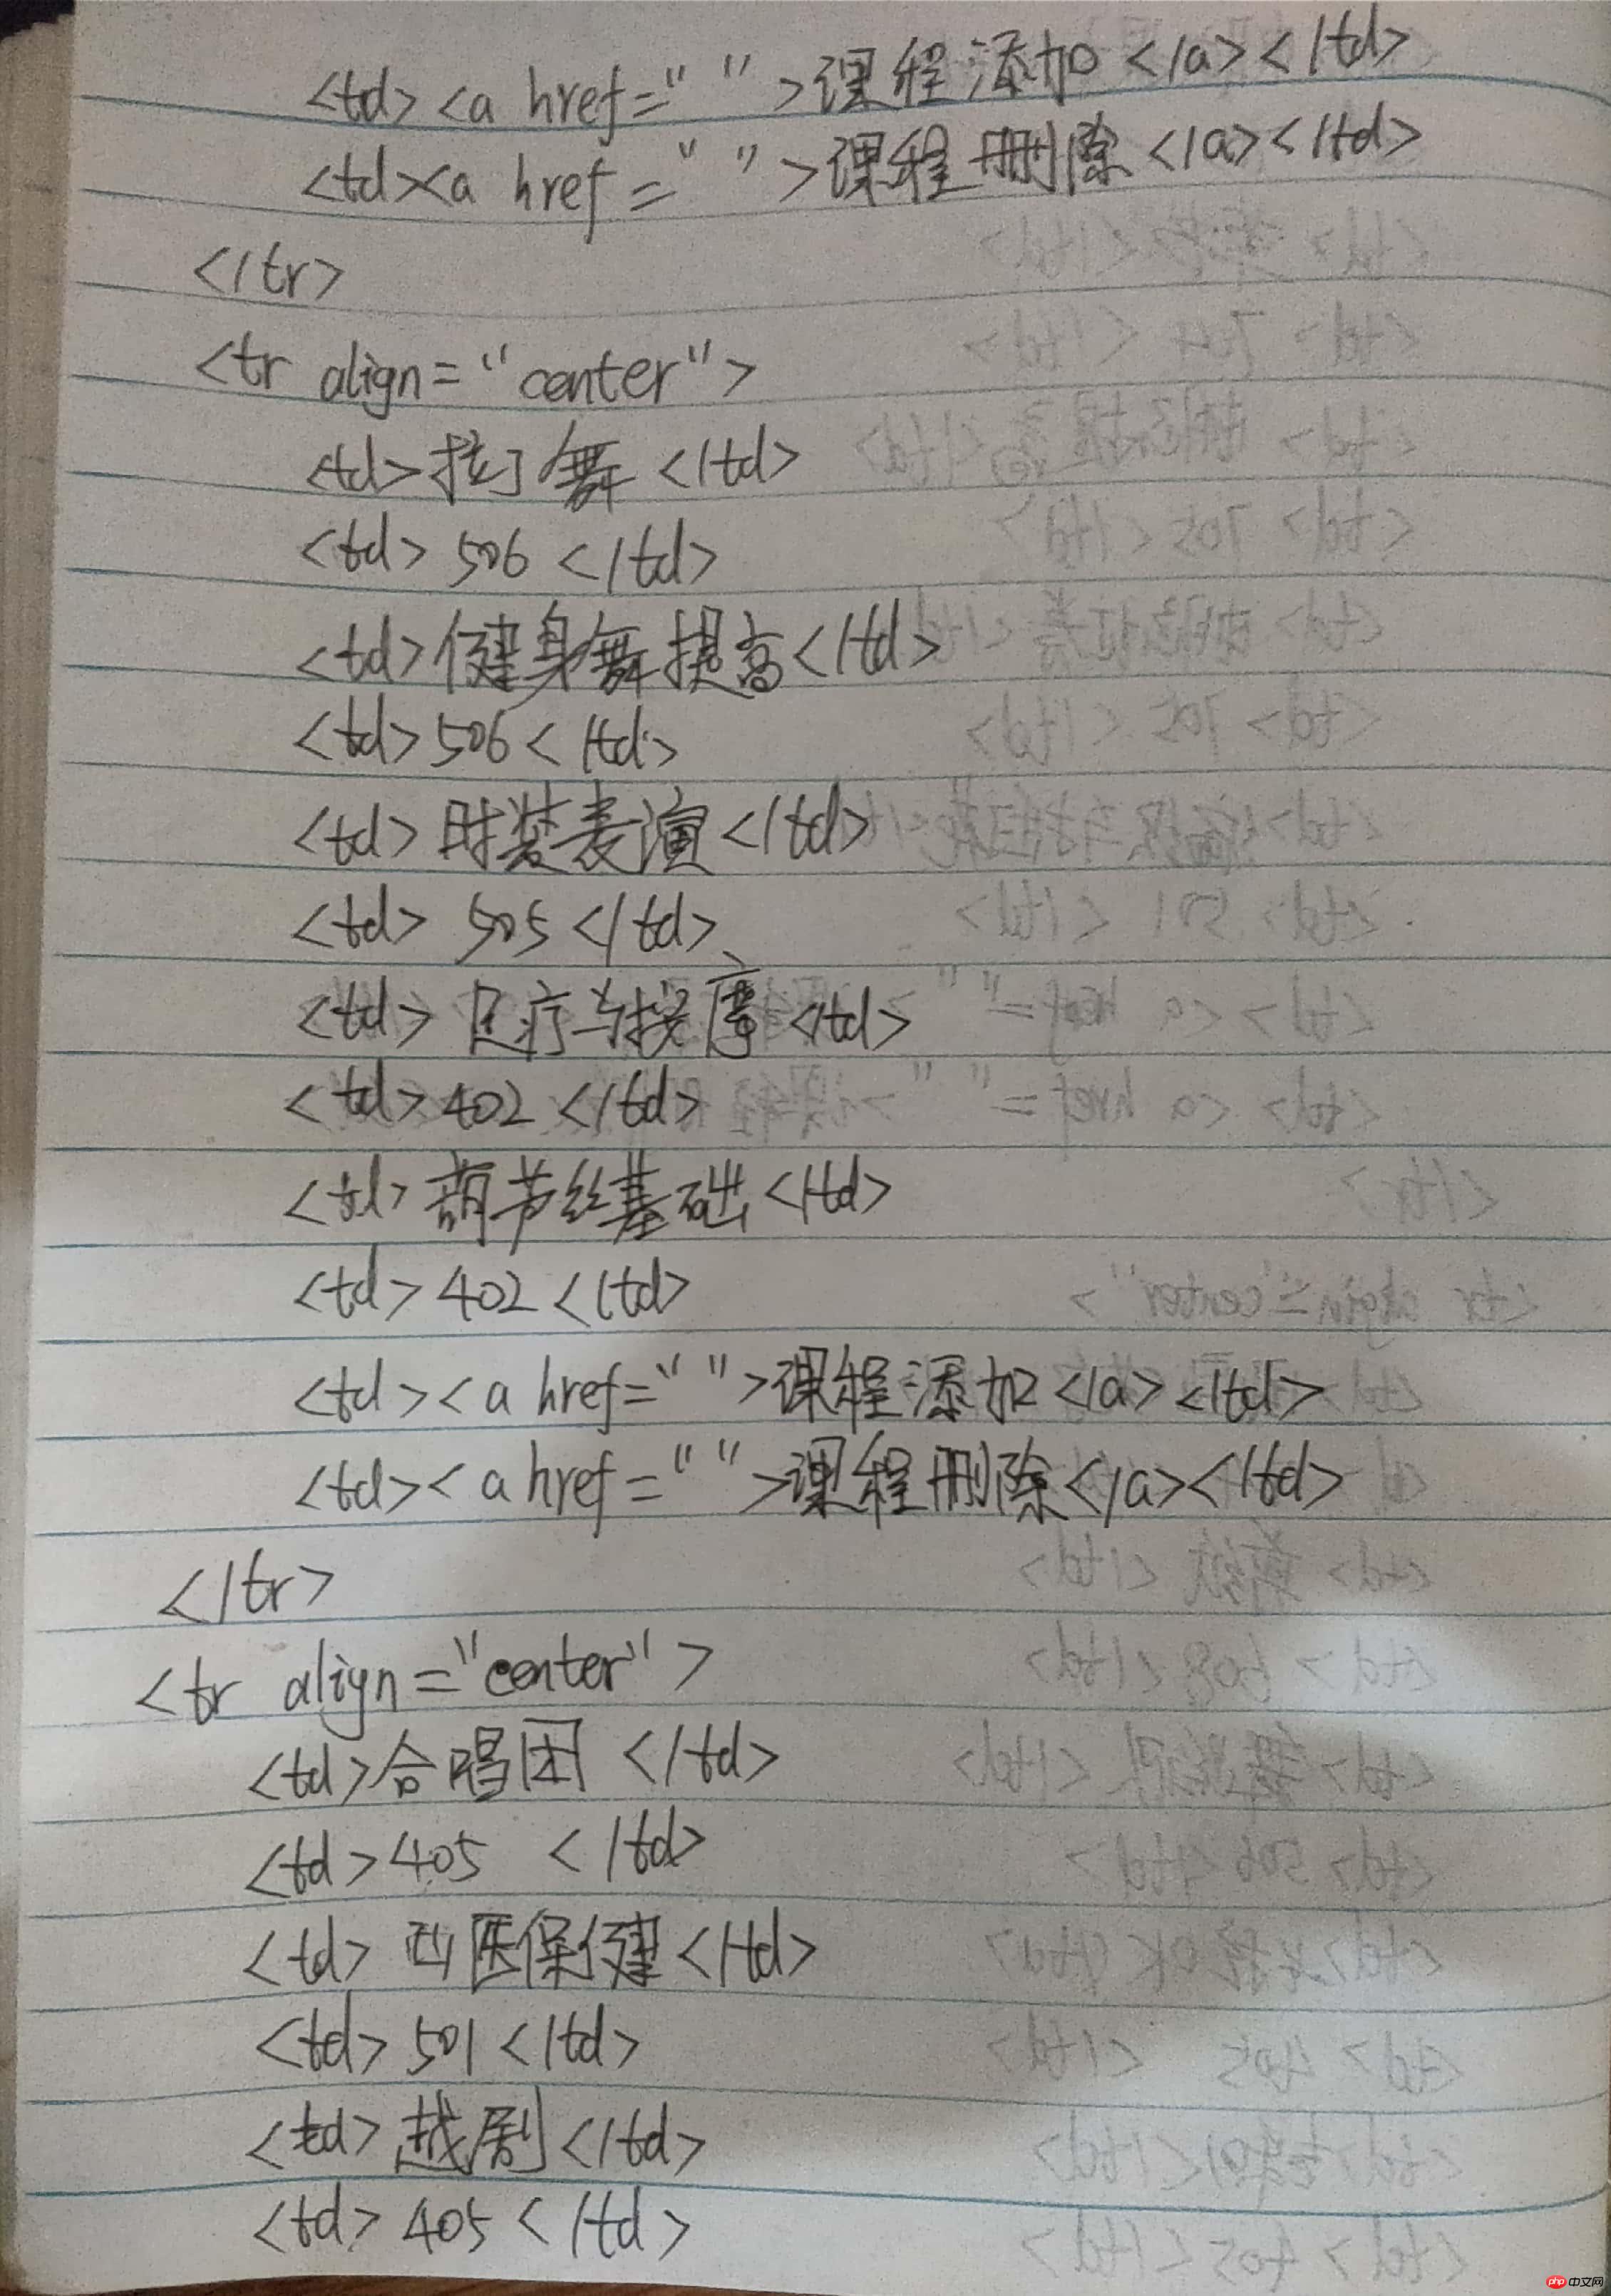 <td><a href=" ">课程添加</a></td>
<td><a href=" ">课程删除</a></td>
</tr>
<tr align="center">
<td>拉丁舞</td>
<td>506</td>
<td>健身舞提高</td>
<td>506</td>
<td>时装表演</td>
<td>505</td>
<td>医疗与按摩<td>
<td>402</td>
<td>葫芦丝基础</td>
<td>402</td>
<td><a href=" ">课程添加</a></td>
<td><a href=" ">课程删除</a></td>
</tr>
<tr align="center">
<td>合唱团</td>
<td>405</td>
<td>西医保健</td>
<td>501</td>
<td>越剧</td>
<td>405</td>
php 中文网